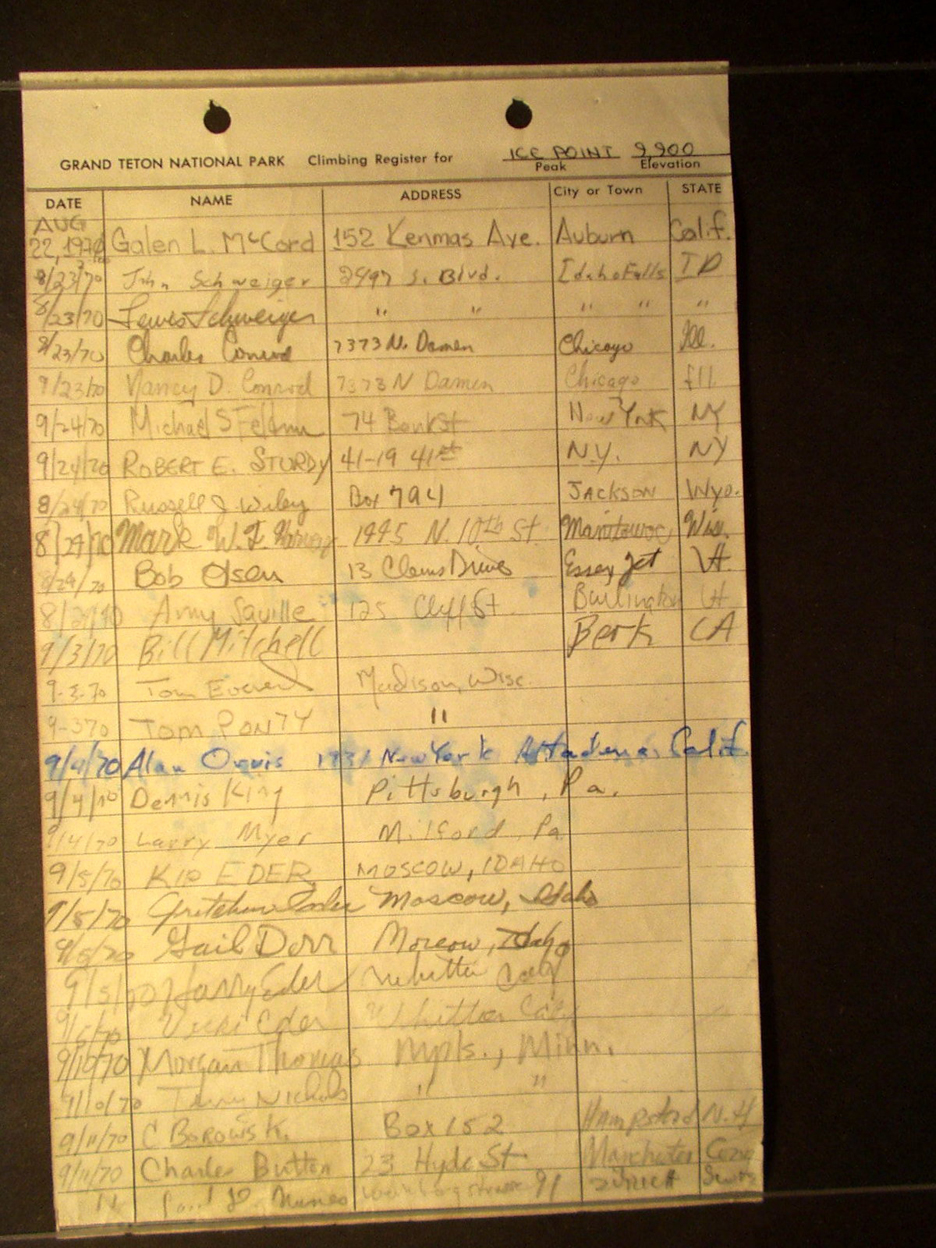 GRAND TETON NATIONAL PARK Climbing Register for ICE POINT 9,900
Peak Elevation
DATE NAME ADDRESS City or Town STATE
AUG
22, 1970 Galen L. McCord 152 Kenmas Ave. Auburn Calif.
8/23/70 John Schweiger 2497 S. Blvd. Idaho Falls ID
8/23/70 Lewis Schweiger " " " " "
8/23/70 Charles Conrod 7373 N. Damen Chicago Ill.
9/23/70 Nancy D. Conrod 7373 N Damen Chicago Ill
9/24/70 Michael 74 Bank St New York NY
9/24/70 ROBERT E. STURDY 41-19 41st N.Y. NY
8/24/70 Russell J Wiley Box 794 JACKSON Wyo.
8/29/70 Mark W. F. 1445 N. 10th St. Manitowoc Wis.
8/29/70 Bob Olsen 13 Drive Essex Jct Vt.
8/29/70 Amy Saville 125 Cliff St Burlington Vt
9/3/70 Bill Mitchell Berk CA
9-3-70 Tom Madison, Wisc.
9-370 TOM PONTY "
9/4/70 Alan Orvis New York Altadena, Calif.
9/4/70 Dennis King Pittsburgh, Pa.
9/4/70 Larry Myer Milford, Pa
9/5/70 KIP EDER MOSCOW, IDAHO
9/5/70 Gretchen Eder Moscow, Idaho
9/5/70 Gail Dorr Moscow, Idaho
9/5/70 Harry Eder Whittier Calif
9/5/70 Vicki Eder Whittier Calif
9/10/70 Morgan Thomas Mpls., Minn.
9/10/70 Nichols " "
9/11/70 C BOROWSK. Box 152 Hampstead N.H
9/11/70 Charles Button 23 Hyde St Manchester Conn
91 ZÜRICH